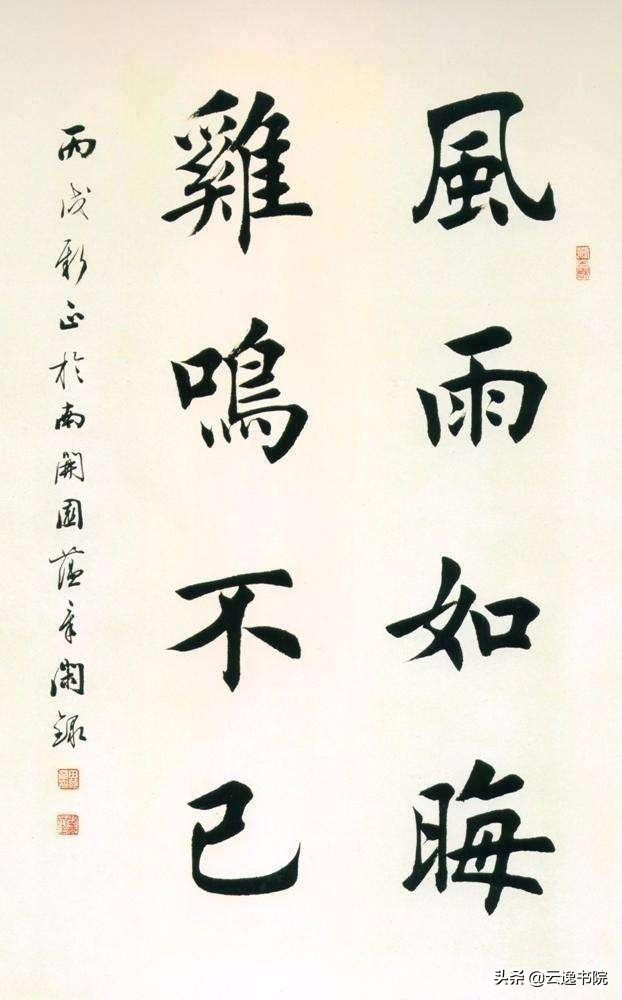 風雨如晦
雞鳴不已
丙戌新正於南開園蘊章錄
头条 @云逸书院